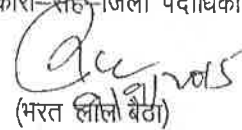 कारी-सह-जिला पदाधिका
(भरत लाल बैठा)